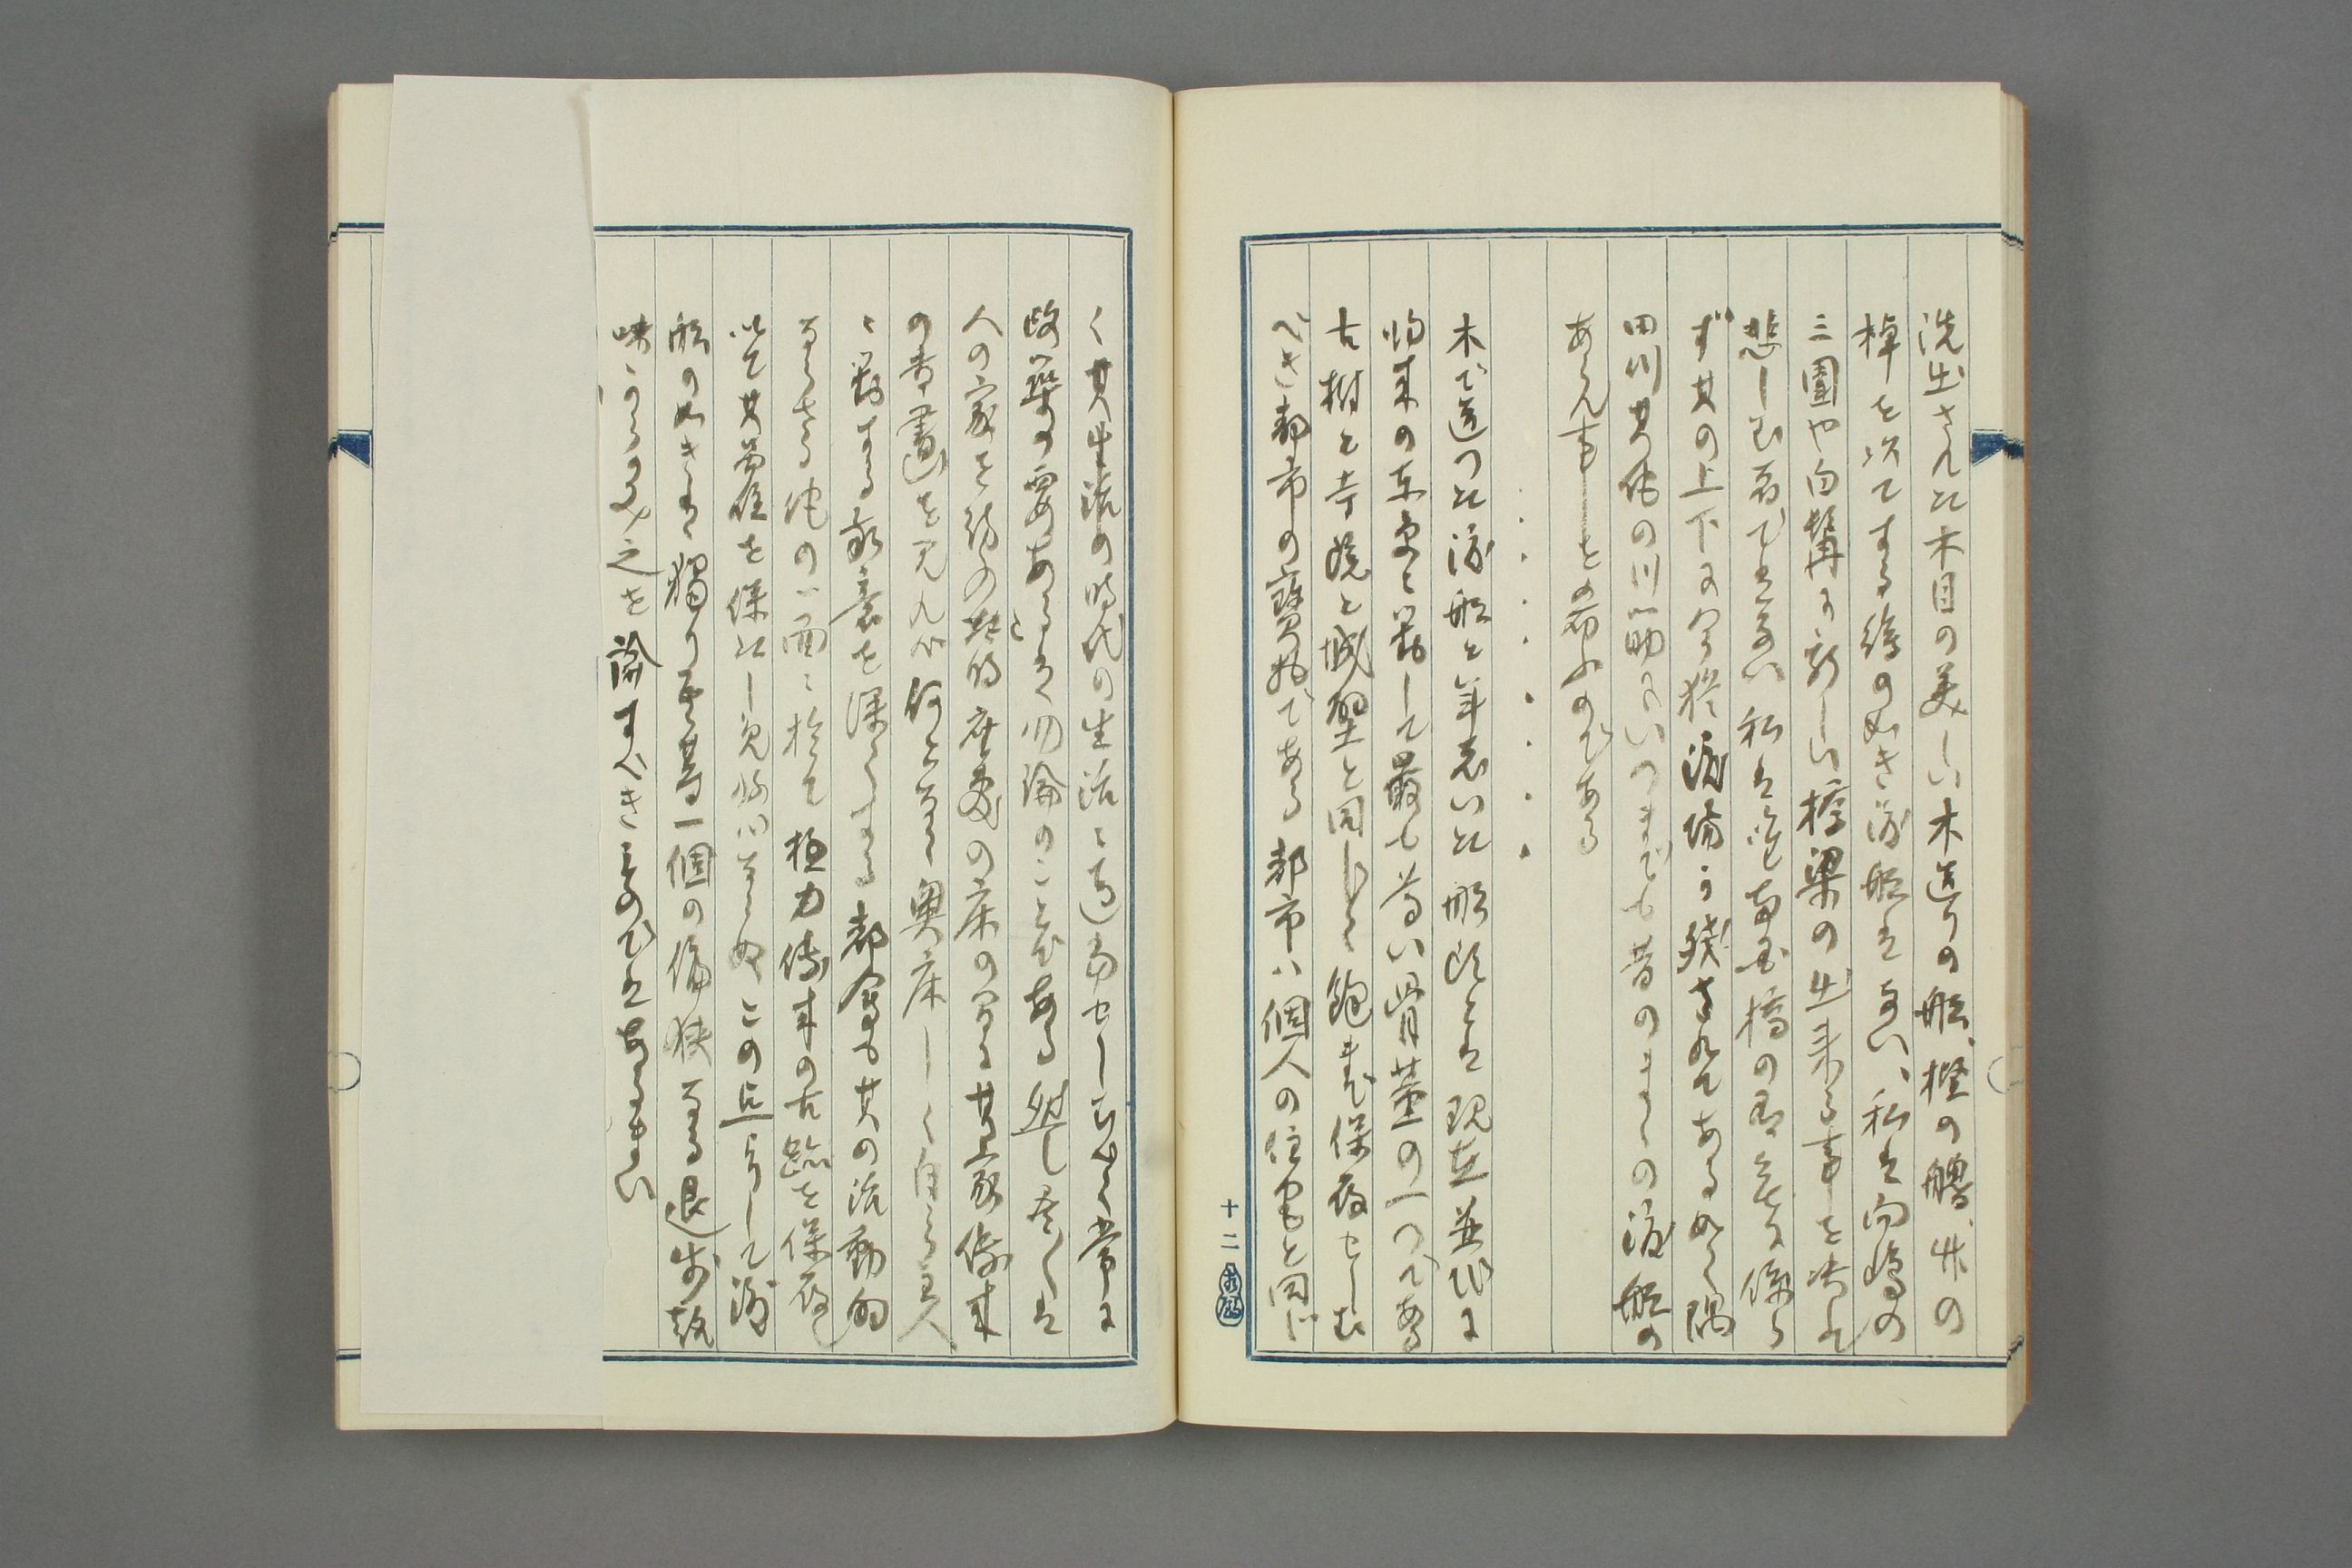 洗出された木目の美しい木造りの船、樫の艪、竹の
棹を以てする絵の如き渡船はない、私は向島の
三囲や白鬚に新しい橋梁の出来る事を決して
悲しむ者ではない 私は唯両国橋の有無に係ら
ず其の上下に今猶渡場が残されてある如く隅
田川其他の川筋にいつまでも昔のまゝの渡船の
あらん事を希ふのである
・・・・・・・・・
木で造つた渡船と年老いた船頭とは現在並びに
将来の東京に対して最も尊い骨董の一つである
古樹と寺院と城壁と同じく飽まで保存せしむ
べき都市の宝物である 都市は個人の住宅と同じ
十二
く其生活の時代の生活に適当せしむべく常に
改築の要あるは勿論のことである 然し尽くは
人の家を訪の時座敷の床の間に其家伝来
の書画を見れば何となく奥床しく自ら主人
に対する敬意を深くする 都会も其の活動的
ならざる他の一面に於て極力伝来の古蹟を保存し
以て其品位を保たしめねばならぬ この点よりして渡
船の如きは独り吾等一個の偏狭なる退歩趣
味からのみ之を論ずべきものではあるまい